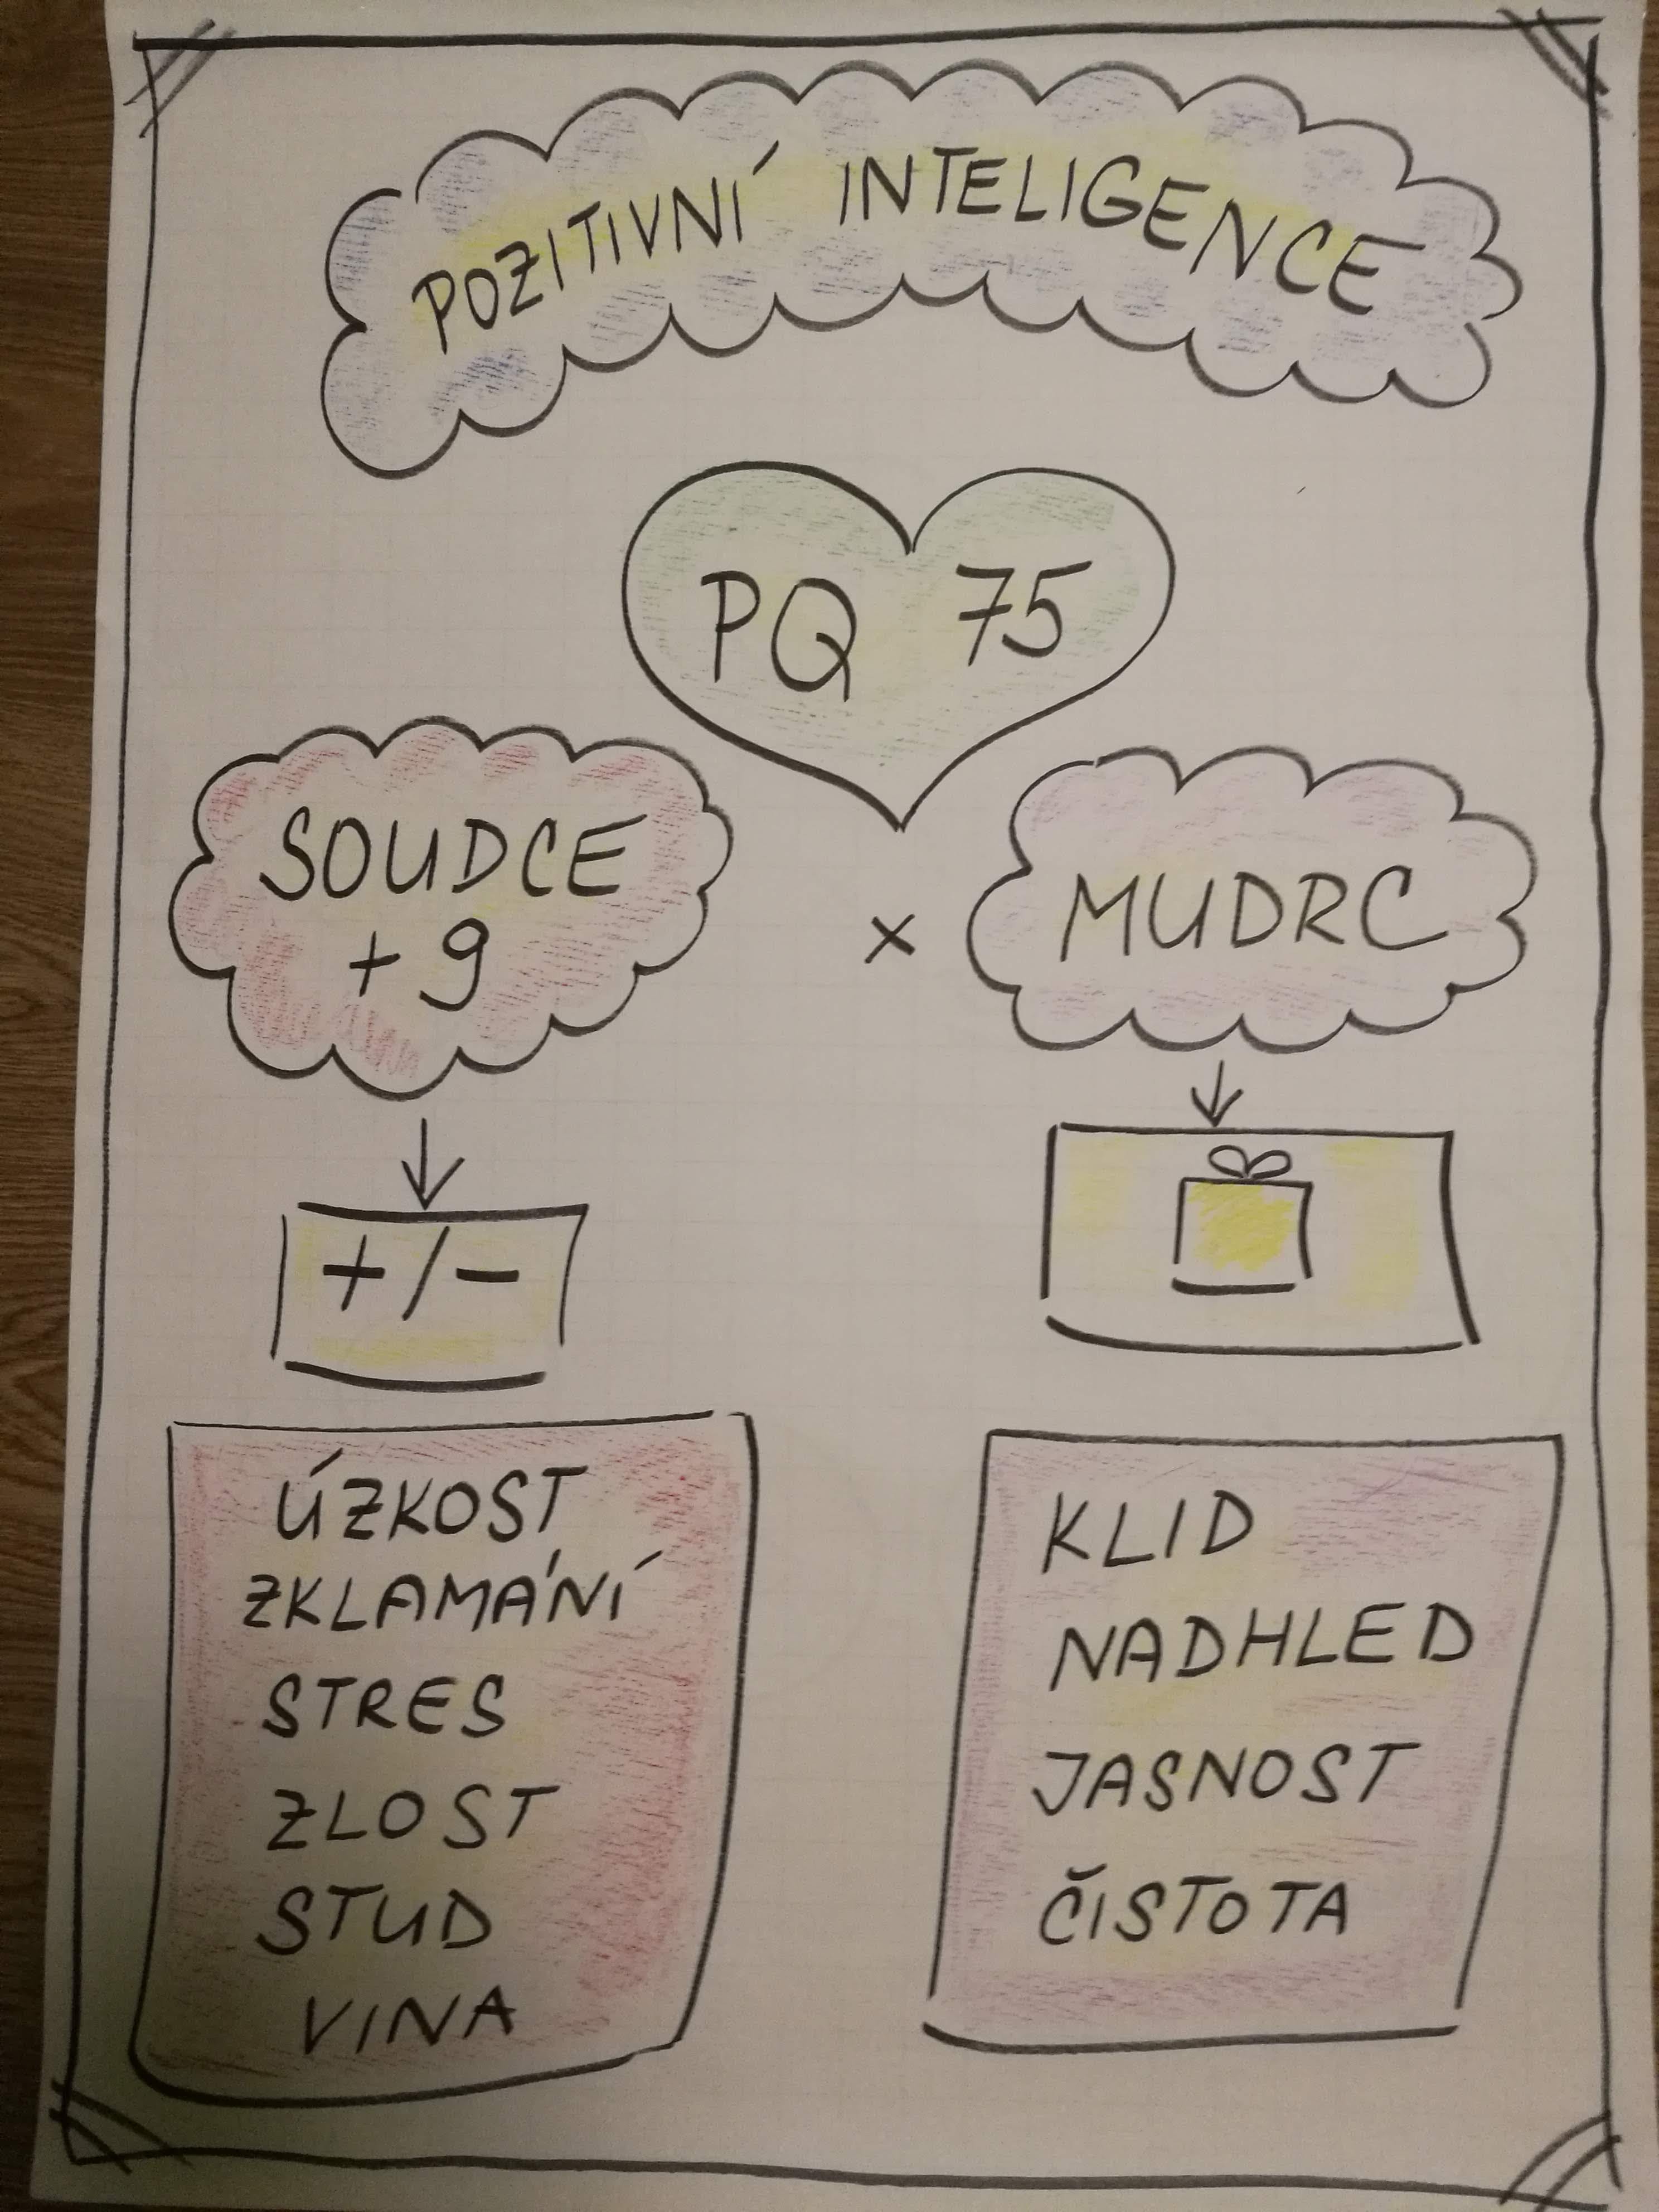 POZITIVNÍ INTELIGENCE
PQ 75
SOUDCE
+ 9
x
MUDRC
+/-
ÚZKOST
ZKLAMÁNÍ
STRES
ZLOST
STUD
VINA
KLID
NADHLED
JASNOST
ČISTOTA